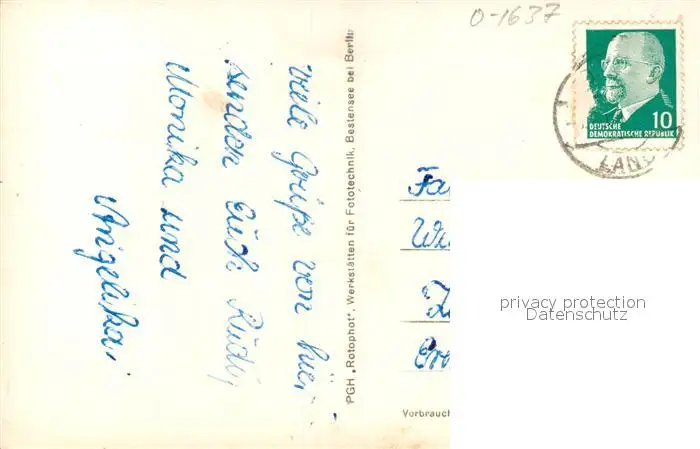 O-1637
DEUTSCHE
DEMOKRATISCHE REPUBLIK
10
LAND
viele Grüße von hier
senden Euch Rudi,
Monika und
Angelika,
PGH „Rotophot", Werkstätten für Fototechnik, Bestensee bei Berlin
Fa
privacy protection
Datenschutz
Vorbrauch